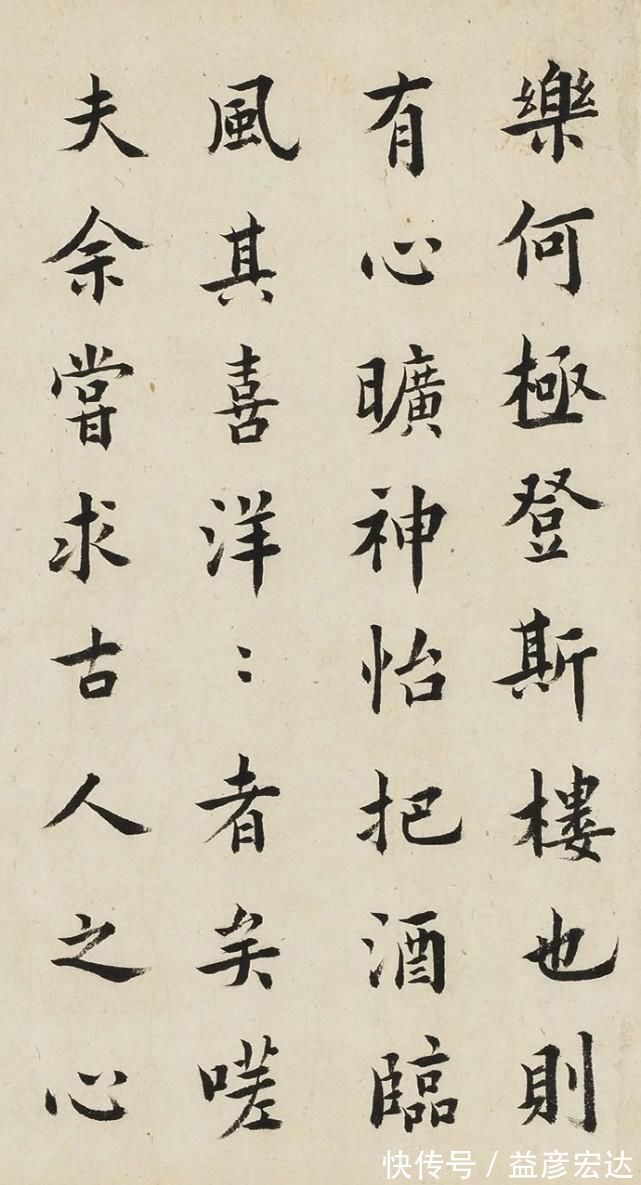 樂何極登斯樓也則
有心曠神怡把酒臨
風其喜洋〻者矣嗟
夫余嘗求古人之心
快传号／益彦宏达